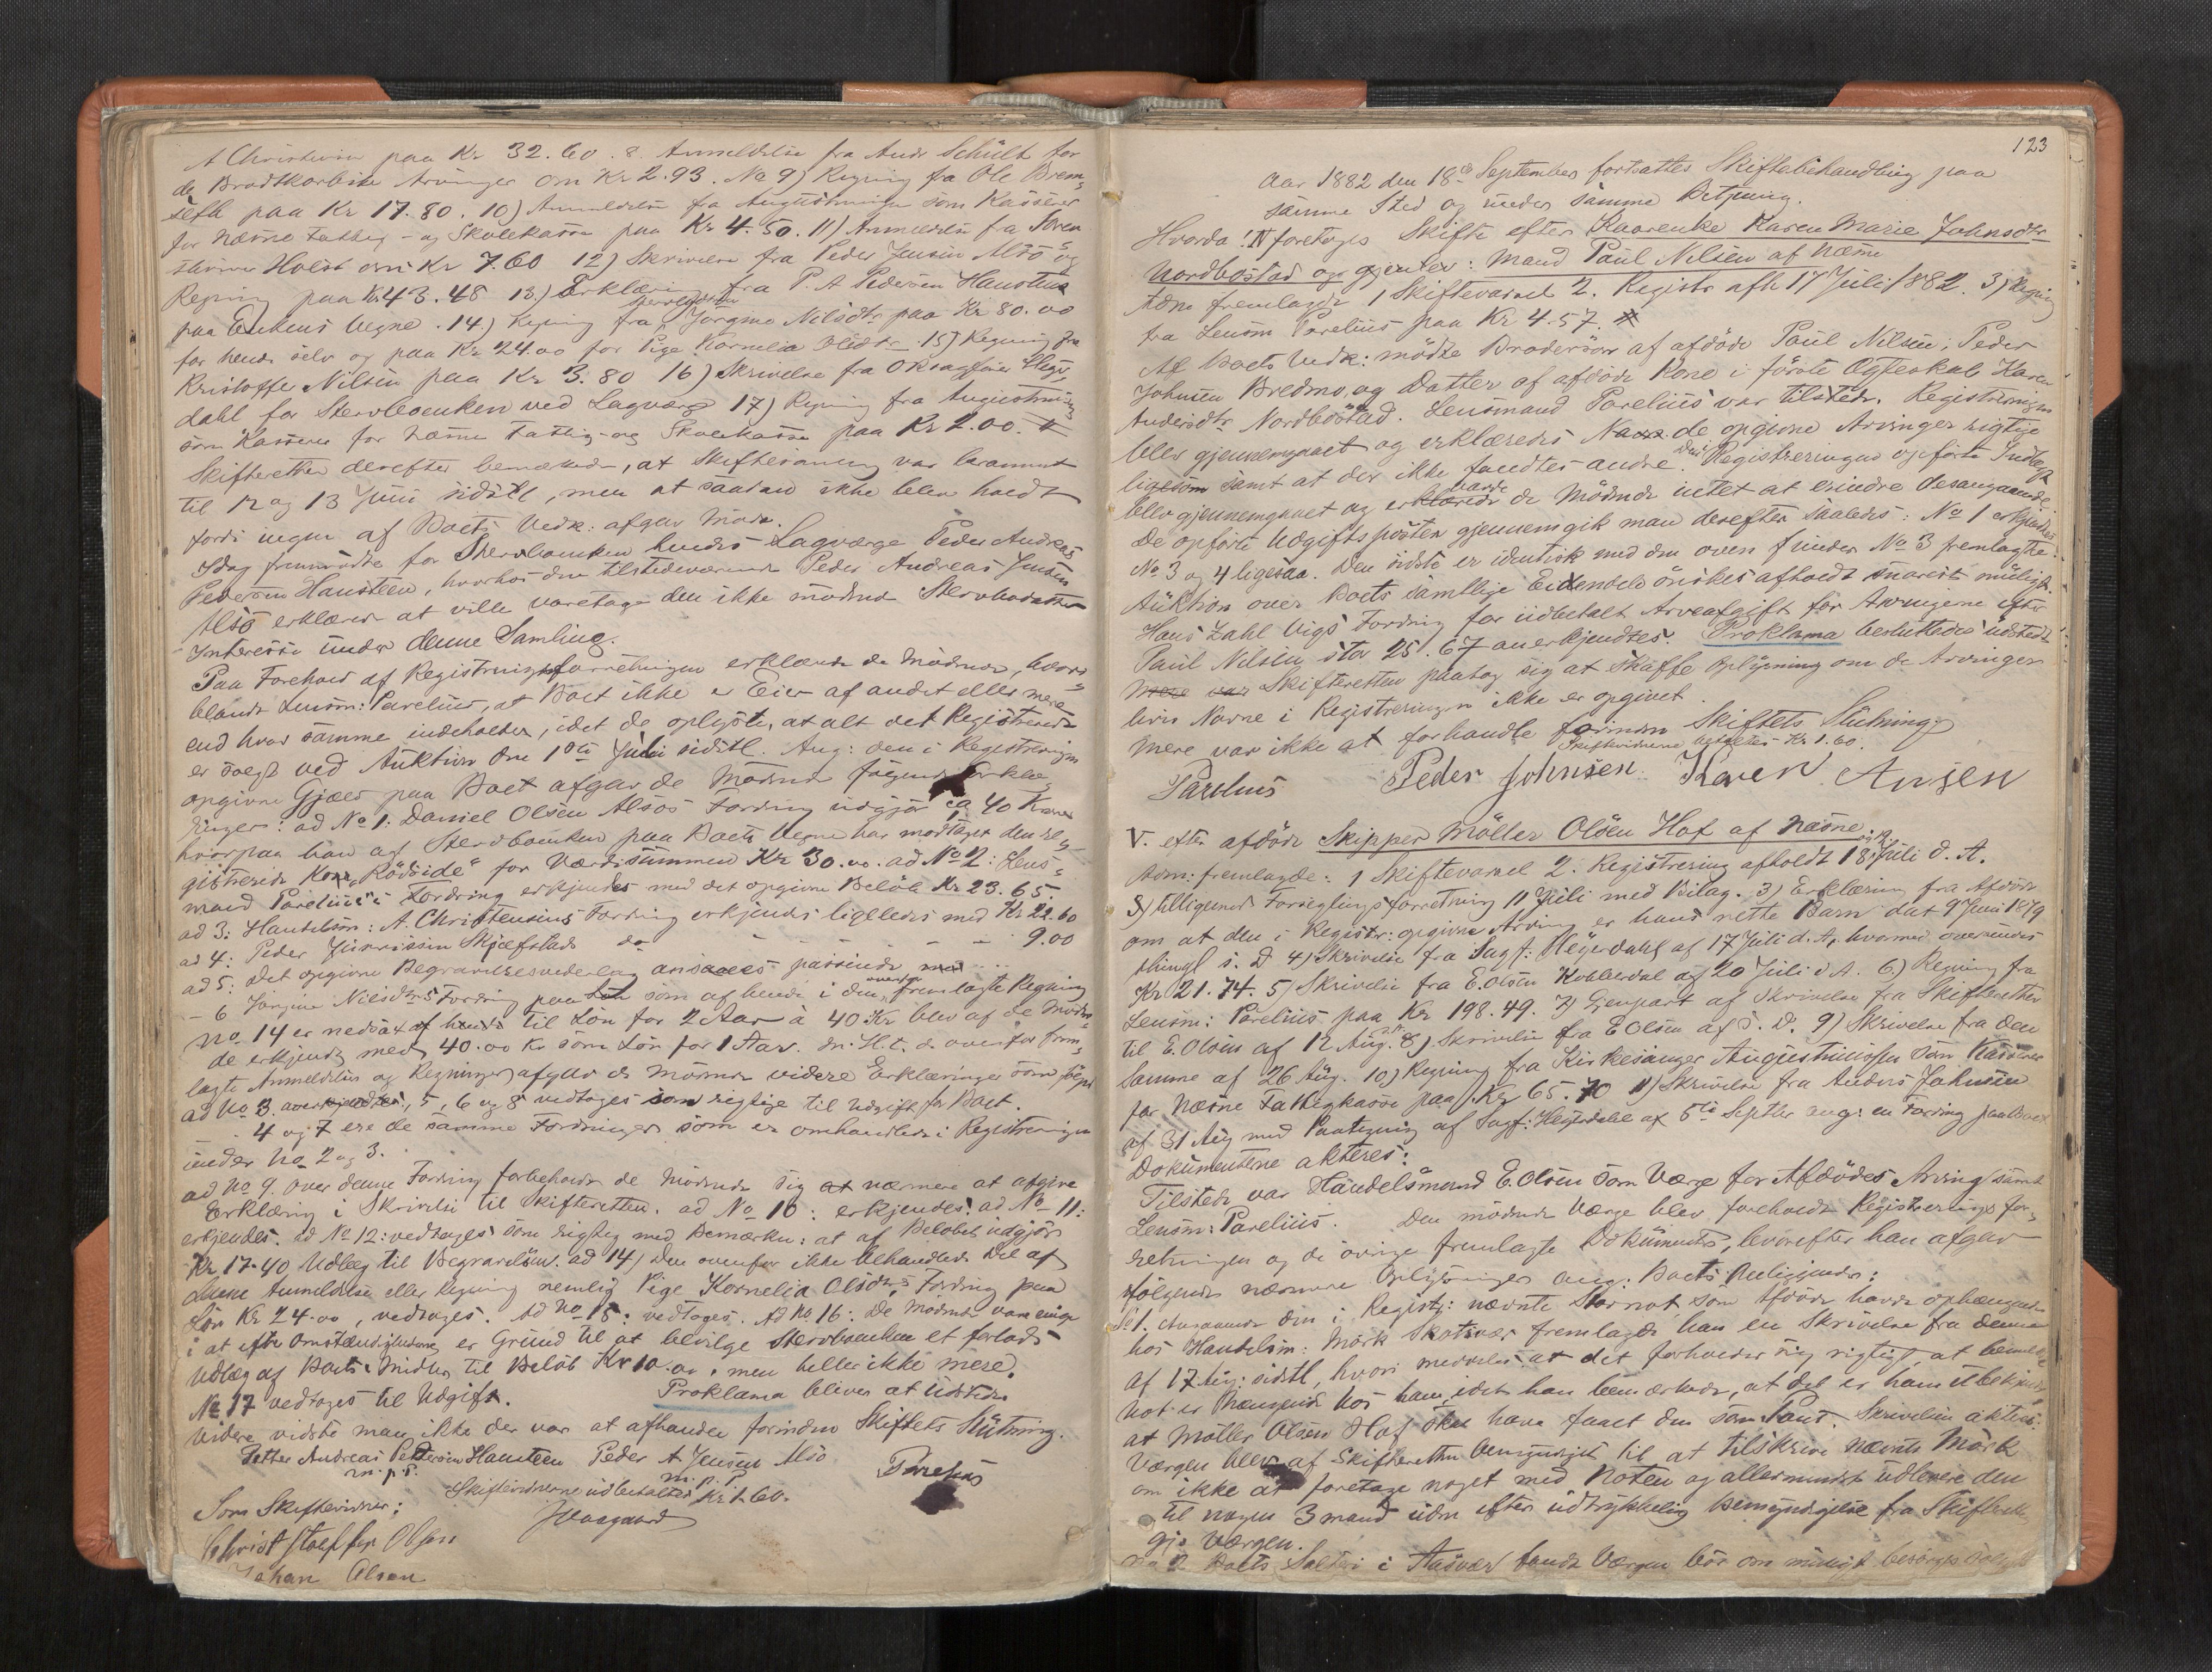 A Christensen paa Kr 32.60. 8. Anmeldelse fra Andr Schült for
de Brodtkorbske Arvinger om Kr 2.93. No 9) Regning fra Ole Brem-
seth paa Kr 17.80. 10) Anmeldelse fra Augustinussen som Kasserer
for Næsne Fattig- og Skolekasse paa Kr 4.50. 11) Anmeldelse fra Soren-
skriver Holst om Kr 7.60 12) Skrivelse fra Peder Jensen Alsö og
Regning paa Kr 43.48 13.) Erklæring fra P. A Pedersen Hausteen
paa Enkens Vegne. 14.) Regning fra Jörgine Nilsdtr paa Kr 80.00
for hende selv og paa Kr 24.00 for Pige Kornelia Olsdtr. 15) Regning fra
Kristoffer Nilsen paa Kr 3.80 16) Skrivelse fra ORsagfører Heyer-
dahl for Stervboenken ved Lagværge 17) Regning fra Augustinussen
som Kasserer for Næsne Fattig- og Skolekasse paa Kr 2.00.
Skifteretten derefter bemærkede, at Skiftesamling var berammet
til 12 og 13 Juni sidstl, men at saadan ikke blev holdt
fordi ingen af Boets Vedk: afgav Møde.
Idag fremmødte for Stervboenken hendes Lagværge Peder Andreas
Pedersen Hausteen, hvorhos den tilstedeværende Peder Andreas Jensen
Alsö erklærede at ville varetage den ikke mødende
Interesse under denne Samling.
Paa Forehold af Registreringsforretningen erklærede de Mødende, hvori-
blandt Lensm: Parelius, at Boet ikke er Eier af andet eller mere
end hvad samme indeholder, idet de oplyste, at alt det Registrerede
er solgt ved Auktion den 10de Juli sidstl. Ang: den i Registreringen
opgivne Gjæld paa Boet afgav de Mødende følgende Erklæ-
ringer: ad No 1: Daniel Olsen Alsös Fordring udgjør ca 40 Kroner
hvorpaa han af Stervboenken paa Boets Vegne har modtaget den re-
gistrerede Ko "Rødside" for Værdisummen Kr 30.00. ad No 2: Lens-
mand Parelius's Fordring erkjendes med det opgivne Beløb Kr 23.65.
ad 3: Handelsm: A. Christensens Fordring erkjendes ligeledes med Kr 22.60
ad 4: Peder Skjæfstads do - - - - 9.00
ad 5: Det opgivne Begravelsesvederlag ansaaes passende
- 6 Jorgine Nilsdtrs Fordring paa Løn som af hende i den ovenfor fremlagte Regning
No 14 er nedsat til Løn for 2 Aar à 40 Kr blev af de Møden-
de erkjendt med 40.00 Kr som Løn for 1 Aar. M. H. t. de ovenfor frem-
lagte Anmeldelser og Regninger afgav de mødende videre Erklæringer som følger
ad No 3. , 5, 6 og 8 vedtages som rigtige til Udgift for Boet.
- 4 og 7 ere de samme Fordringer som er omhandlede i Registreringen
under No 2 og 3.
ad No 9. Over denne Fordring forbeholdt de Mødende sig nærmere at afgive
Erklæring i Skrivelse til Skifteretten. ad No 10: erkjendes. ad No 11:
erkjendes. ad No 12: vedtages som rigtig med Bemærkn: at af Beløbet udgjør
Kr 17.40 Udlæg til Begravelsen. ad 14) Den ovenfor ikke behandlede Del af
denne Anmeldelse eller Regning nemlig Pige Kornelia Olsdtrs Fordring paa
Løn Kr 24.00, vedtages. Ad No 15: vedtages. Ad No 16: De Mødende vare enige
i at efter Omstændighederne er Grund til at bevilge Stervboenken et forlods
Udlæg af Boets Midler til Beløb Kr 10.00, men heller ikke mere.
No 17 vedtages til Udgift. Proklama bliver at udstede
Videre vidste man ikke der var at afhandle forinden Skiftets Slutning.
Petter Andreas Pettersen Hausteen Peder A Jensen Alsö Parelius
m. p. P. m. p. P
Skiftevidnerne udbetaltes Kr 1.60.
Som Skiftevidner:
Christstoeffer Olsen
Johan Olsen
123
Aar 1882 den 18de September fortsattes Skiftebehandling paa
samme Sted og under samme Betjening.
Hvorda! IV foretoges Skifte efter Kaarenke Karen Marie Johnsdtr
Nordbøstad og gjenlev: Mand Paul Nilsen af Næsne
Adm fremlagde 1 Skiftevarsel 2. Registr afh 17 Juli 1882. 3) Regning
fra Lensm Parelius paa Kr 4.57.
Af Boets Vedk: mødte Brodersøn af afdøde Paul Nilsen, Peder
Johnsen Bredmo, og Datter af afdøde Kone i første Ægteskab Karen
Andersdtr Nordbøstad. Lensmand Parelius var tilstede. Registreringen
blev gjennemgaaet og erklæredes de opgivne Arvinger rigtige
ligesom samt at der ikke fandtes andre. Den i Registreringen opførte Indtægt
blev gjennemgaaet og havde de Mødende intet at erindre desangaaende.
De opførte Udgiftsposter gjennemgik man derefter saaledes: No 1 erkjendtes.
No 3 og 4 ligesaa. Den sidste er identisk med den oven under No 3 fremlagte.
Auktion over Boets samtlige Eiendele ønskes afholdt snarest muligt.
Hans Zahl Vigs Fordring for udbetalt Arveafgift for Arvingerne efter
Paul Nilsen stor 25.67 anerkjendtes. Proklama besluttedes udstedt
Skifteretten paatog sig at skaffe Oplysning om de Arvinger
hvis Navne i Registreringen ikke er opgivet.
Mere var ikke at forhandle forinden Skiftets Slutning
Skiftevidnerne betaltes Kr 1.60.
Parelius Peder Johnsen. Karen Ansen
V. efter afdøde Skipper Möller Olsen Hof af Næsne
Adm: fremlagde: 1 Skiftevarsel 2. Registrering afholdt 18 Juli d. A.
tilligemed Forseglingsforretning 11 Juli med Bilag. 3) Erklæring fra Afdøde
om at den i Registr: opgivne Arving er hans rette Barn dat 9 Juni 1879
thingl s. D 4) Skrivelse fra Sagf: Heyerdahl af 17 Juli d. A, hvormed oversendes
Kr 21.74. 5) Skrivelse fra E. Olsen Kobberdal af 20 Juli d A. 6) Regning fra
Lensm: Parelius paa Kr 198.49. 7) Gjenpart af Skrivelse fra Skifteretten
til E. Olsen af 12 Aug. 8) Skrivelse fra E Olsen af s. D. 9) Skrivelse fra den
Samme af 26 Aug. 10) Regning fra Kirkesanger Augustinussen som Kasserer
for Næsne Fattigkasse paa Kr 65.70 11) Skrivelse fra Anders Johnsen
af 31 Aug med Paategning af Sagf: Heyerdahl af 5te Septbr ang: en Fordring paa Boet
Dokumenterne akteres:
Tilstede var Handelsmand E. Olsen som Værge for Afdødes Arving samt
Lensm: Parelius. Den mødende Værge blev foreholdt Registreringsfor-
retningen og de øvrige fremlagte Dokumenter, hvorefter han afgav
følgende nærmere Oplysninger ang: Boets Anliggender:
No 1. Angaaende den i Registr: nævnte Stornot som Afdøde havde ophængende
hos Handelsm: Mörk Skotsvær fremlagde han en Skrivelse fra denne
af 17 Aug: sidstl, hvori meddeles at det forholder sig rigtigt at
Not er hængende hos ham, idet han bemærkede, at det er ham ubekjendt
at Møller Olsen Hof skal have faaet den som Pant. Skrivelsen akteres.
Værgen blev af Skifteretten bemyndiget til at tilskrive nævnte Mörk
om ikke at foretage noget med Noten og allermindst udlevere den
til nogen 3 mand uden efter udtrykkelig Bemyndigelse fra Skifterett
gj: Værgen.
No 2 Boets i Aasvær fandt Værgen bör om muligt besörges solgt